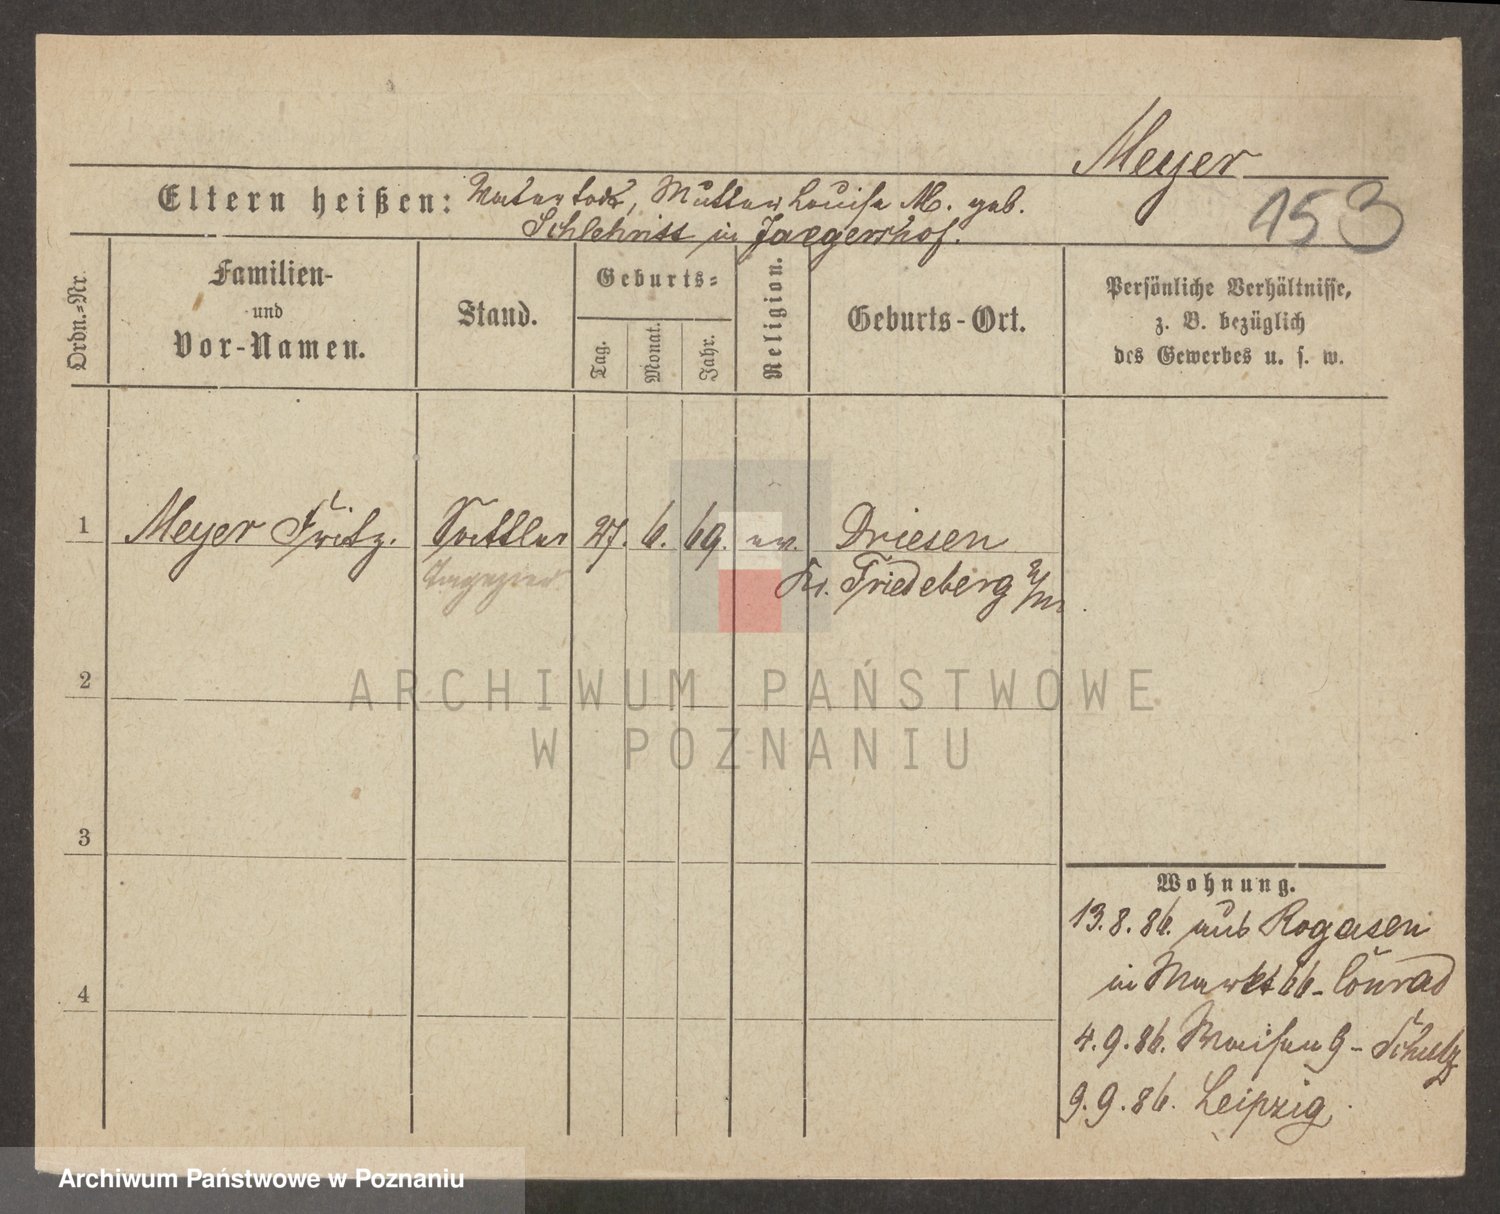 Meyer
153
Eltern heißen: Vater todt, Mutter Louise M. geb.
in Jaegershof.
Ordn.-Nr.
Familien-
und
Vor-Namen.
Stand.
Geburts-
Tag.
Monat.
Jahr.
Religion.
Geburts-Ort.
Persönliche Verhältnisse,
z. B. bezüglich
des Gewerbes u. s. w.
1 Meyer Fritz. Sattler 27. 6. 69. ev. Driesen
Kr. Friedeberg N/M.
2
3
4
ARCHIWUM PAŃSTWOWE
W POZNANIU
Wohnung.
13.8.86. aus Rogasen
in Markt 66 - Conrad
4.9.86. Waisen 9 - Schulz
9.9.86. Leipzig.
Archiwum Państwowe w Poznaniu